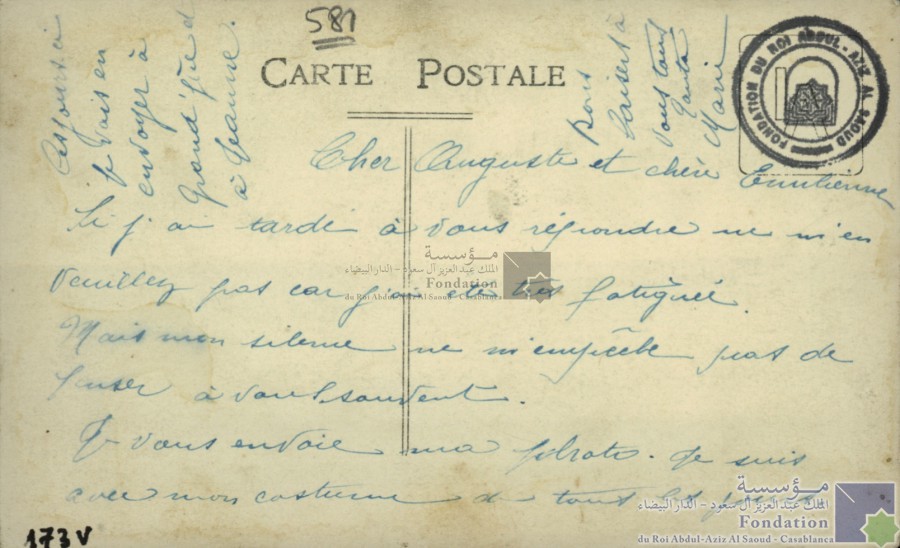 581
CARTE POSTALE
FONDATION DU ROI ABDUL-AZIZ AL SAOUD
Cher Auguste et chère Emilienne
Si j'ai tardé à vous répondre ne m'en
veuillez pas car j'ai été très fatiguée
Mais mon silence ne m'empêche pas de
penser à vous souvent.
Je vous envoie ma photo. Je suis
avec mon costume de tous les jours
Ces jours ci
je vais en
envoyer à
grand'mère et
à Jeanne.
Bons
baisers à
vous tous
Tanta
Marie
مؤسسة
الملك عبد العزيز آل سعود - الدار البيضاء
Fondation
du Roi Abdul-Aziz Al Saoud - Casablanca
مؤسسة
الملك عبد العزيز آل سعود - الدار البيضاء
Fondation
du Roi Abdul-Aziz Al Saoud - Casablanca
173v